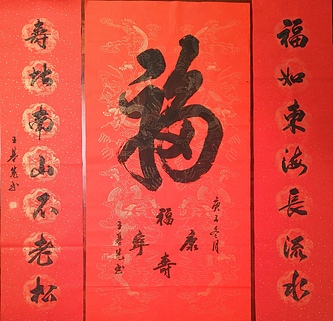 福如東海長流水
福
庚子冬月
福
康
寧
壽
壽比南山不老松